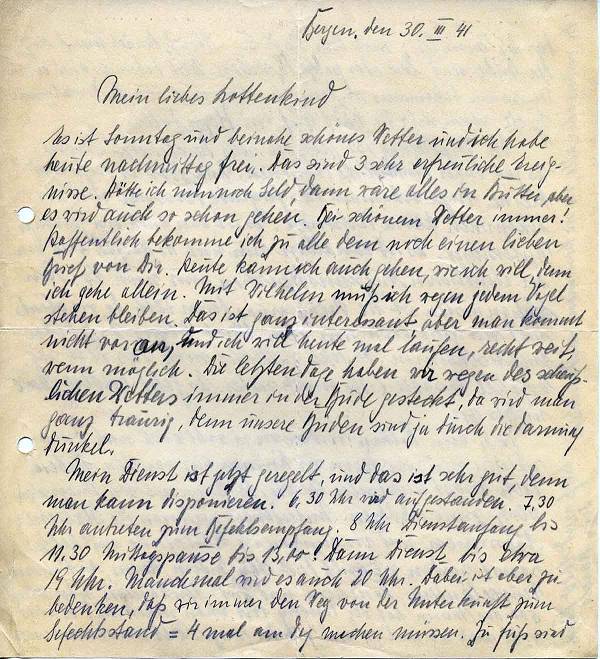 Bergen, den 30. III 41
Mein liebes Lottenkind
Es ist Sonntag und beinahe schönes Wetter und ich habe
heute nachmittag frei. Das sind 3 sehr erfreuliche Ereig-
nisse. Hätte ich nun noch Geld, dann wäre alles in Butter, aber
es wird auch so schon gehen. Bei schönem Wetter immer!
Hoffentlich bekomme ich zu alle dem noch einen lieben
Brief von Dir. Heute kann ich auch gehen, wie ich will, denn
ich gehe allein. Mit Wilhelm muß ich wegen jedem Vogel
stehen bleiben. Das ist ganz interessant, aber man kommt
nicht voran, und ich will heute mal laufen, recht weit,
wenn möglich. Die letzten Tage haben wir wegen des scheuß-
lichen Wetters immer in der Bude gesteckt, da wird man
ganz traurig, denn unsere Buden sind ja durch die
dunkel.
Mein Dienst ist jetzt geregelt, und das ist sehr gut, denn
man kann disponieren. 6,30 Uhr wird aufgestanden. 7,30
Uhr antreten zum Befehlsempfang. 8 Uhr Dienstanfang bis
11.30 Mittagspause bis 13,00. Dann Dienst bis etwa
19 Uhr. Manchmal wird es auch 20 Uhr. Dabei ist aber zu
bedenken, daß wir immer den Weg von der Unterkunft zum
Gefechtsstand = 4 mal am Tag machen müssen. Zu Fuß sind